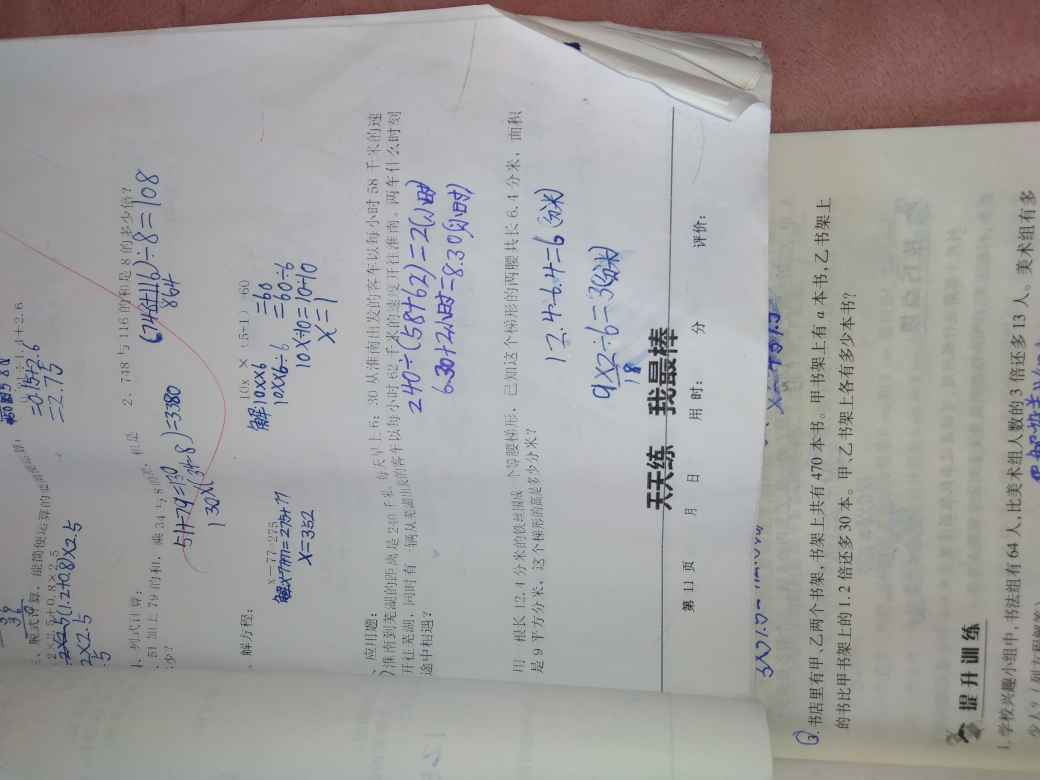 脱式计算，能简便运算的要简便运算：
2×2.5+0.8×2.5
2×2.5(1.2+0.8)×2.5
2×2.5
5
=0.15+2.6
=2.75
、列式计算：
51加上79的和，乘34与8的差，积是
少？
51+79=130
130×(34-8)=3380
2、748与116的和是8的多少倍？
(748+116)÷8=108
864
、解方程：
x－77=275
解x-77+77=275+77
x=352
10x × (5+1) =60
解:10x×6=60
10x×6÷6=60÷6
10x÷10=10÷10
x=1
、应用题：
)淮南到芜湖的距离是240千米，每天早上6：30从淮南出发的客车以每小时58千米的速
开往芜湖，同时有一辆从芜湖出发的客车以每小时62千米的速度开往淮南。两车什么时刻
途中相遇？
240÷(58+62)=2(小时)
6.30+2小时=8.30(小时)
用一根长12.4分米的铁丝围成一个等腰梯形，已知这个梯形的两腰共长6.4分米，面积
是9平方分米，这个梯形的高是多少分米？
12.4-6.4=6(分米)
9×2÷6=3(分米)
18
天天练 我最棒
第 11 页 月 日 用 时： 分 评价：
3.书店里有甲、乙两个书架，书架上共有470本书。甲书架上有a本书，乙书架上
的书比甲书架上的1.2倍还多30本。甲、乙书架上各有多少本书？
提升训练
1.学校兴趣小组中，书法组有64人，比美术组人数的3倍还多13人。美术组有多
少人？(列方程解答)